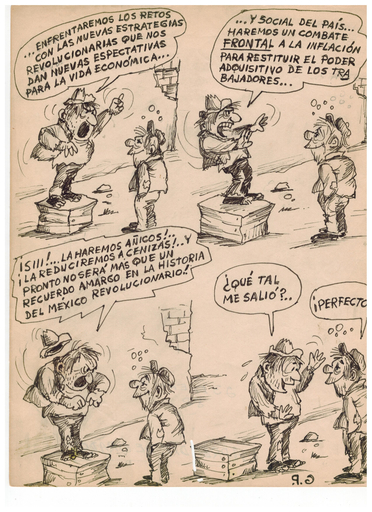 ...ENFRENTAREMOS LOS RETOS
CON LAS NUEVAS ESTRATEGIAS
REVOLUCIONARIAS QUE NOS
DAN NUEVAS ESPECTATIVAS
PARA LA VIDA ECONÓMICA...
...Y SOCIAL DEL PAÍS...
HAREMOS UN COMBATE
FRONTAL A LA INFLACIÓN
PARA RESTITUIR EL PODER
ADQUISITIVO DE LOS TRA
BAJADORES...
¡SIII!...LA HAREMOS AÑICOS!..
¡LA REDUCIREMOS A CENIZAS!..Y
PRONTO NO SERÁ MAS QUE UN
RECUERDO AMARGO EN LA HISTORIA
DEL MÉXICO REVOLUCIONARIO!
¿QUÉ TAL
ME SALIÓ?..
¡PERFECTO
G.R